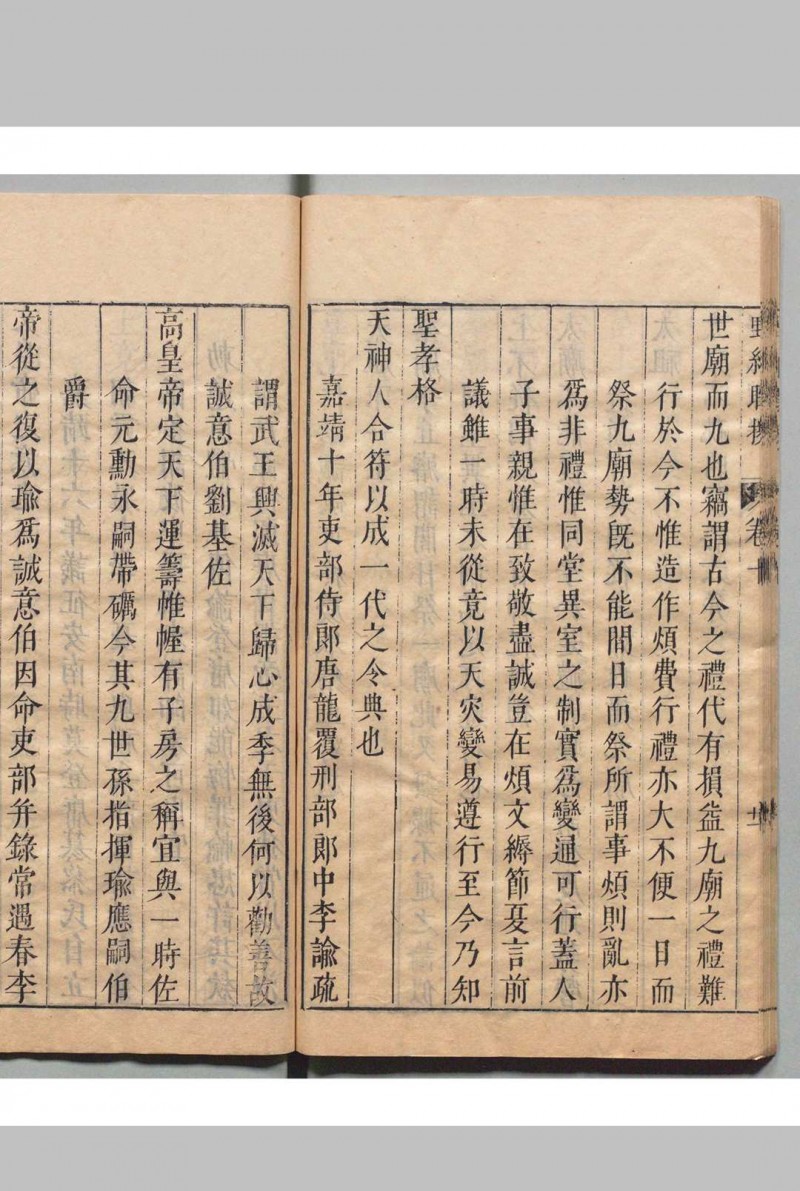 卷十
世廟而九也竊謂古今之禮代有損益九廟之禮難
行於今不惟造作煩費行禮亦大不便一日而
祭九廟勢既不能間日而祭所謂事煩則亂亦
爲非禮惟同堂異室之制實爲變通可行蓋人
子事親惟在致敬盡誠豈在煩文縟節夏言前
議雖一時未從竟以天灾變易遵行至今乃知
聖孝格
天神人合符以成一代之令典也
嘉靖十年吏部侍郎唐龍覆刑部郎中李諭疏
謂武王興滅天下歸心成季無後何以勸善故
誠意伯劉基佐
高皇帝定天下運籌帷幄有子房之稱宜與一時佐
命元勳永嗣帶礪今其九世孫指揮瑜應嗣伯
爵
帝從之復以瑜爲誠意伯因命吏部并錄常遇春李